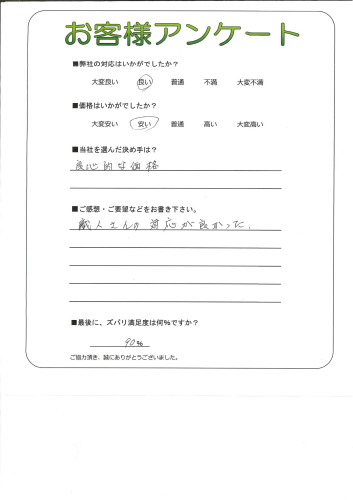 お客様アンケート
■弊社の対応はいかがでしたか？
大変良い 良い 普通 不満 大変不満
■価格はいかがでしたか？
大変安い 安い 普通 高い 大変高い
■当社を選んだ決め手は？
良心的な価格
■ご感想・ご要望などをお書き下さい。
職人さんの対応が良かった。
■最後に、ズバリ満足度は何%ですか？
90%
ご協力頂き、誠にありがとうございました。